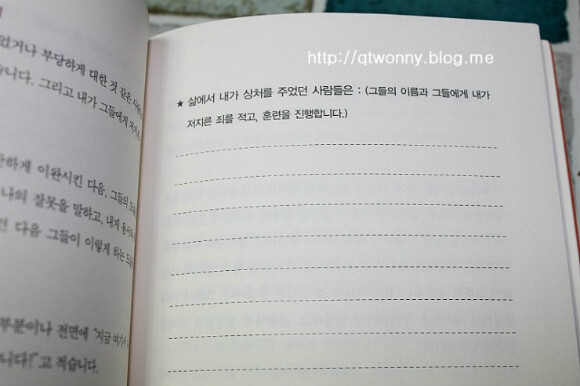 었거나 부당하게 대한 것 같은
습니다. 그리고 내가 그들에게
하게 이완시킨 다음, 그들의
나의 잘못을 말하고, 내게
다음 그들이 이렇게 하는
부분이나 전면에 "지금 여기서
니다!"고 적습니다.
http://qtwonny.blog.me
★ 삶에서 내가 상처를 주었던 사람들은 : (그들의 이름과 그들에게 내가
저지른 죄를 적고, 훈련을 진행합니다.)